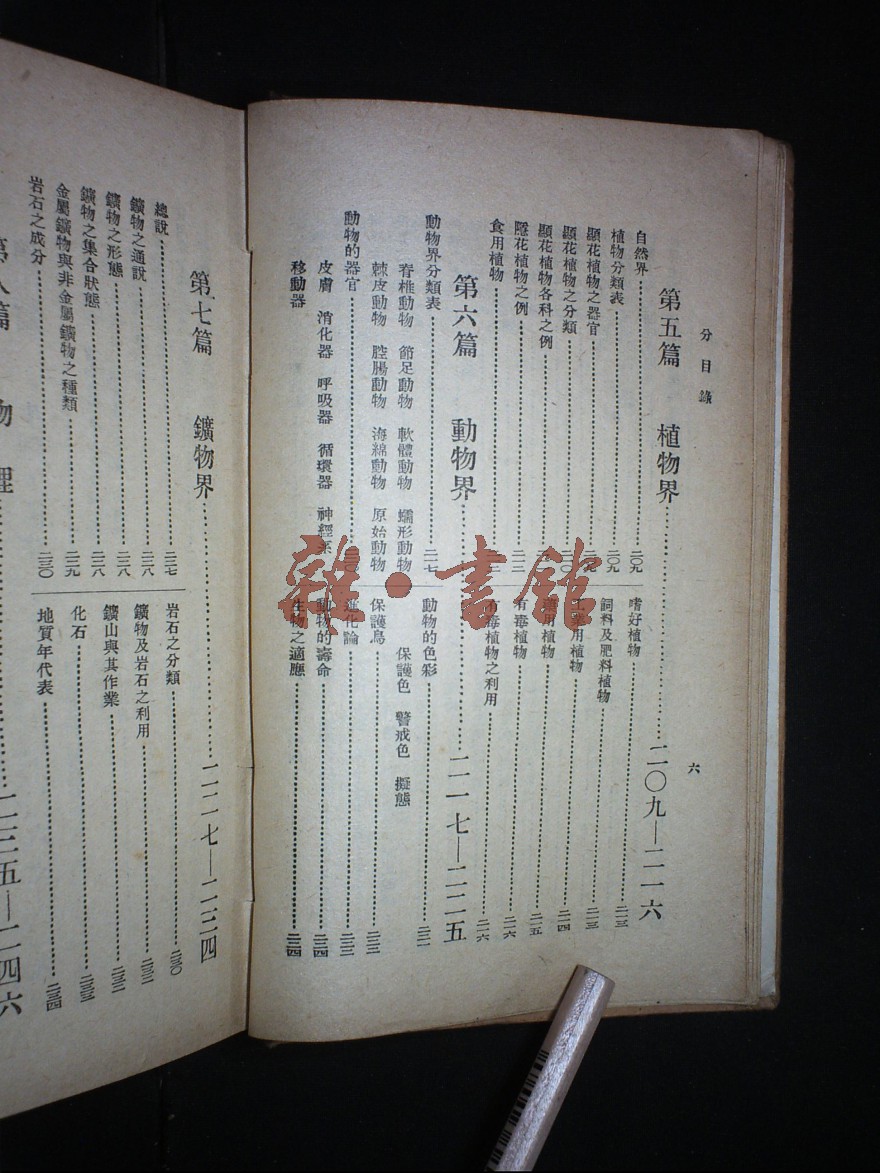 分目錄
六
第五篇 植物界 二〇九—二一六
自然界 二〇九
植物分類表 二〇九
顯花植物之器官
顯花植物之分類
顯花植物各科之例
隱花植物之例
食用植物
嗜好植物 二一三
飼料及肥料植物 二一三
工業用植物 二一四
藥用植物 二一五
有毒植物 二一六
有毒植物之利用 二一六
第六篇 動物界 二一七—二二五
動物界分類表 二一七
脊椎動物 節足動物 軟體動物 蠕形動物
棘皮動物 腔腸動物 海綿動物 原始動物
動物的器官
皮膚 消化器 呼吸器 循環器 神經系
移動器
動物的色彩
保護色 警戒色 擬態
保護鳥
進化論
動物的壽命
生物之適應
第七篇 鑛物界 二二七—二三四
總說 二二七
鑛物之通說 二二八
鑛物之形態 二二八
鑛物之集合狀態 二二八
金屬鑛物與非金屬鑛物之種類 二二九
岩石之成分 二三〇
岩石之分類 二三〇
鑛物及岩石之利用
鑛山與其作業
化石
地質年代表
第八篇 物理 二三五—二四六
雜·書館